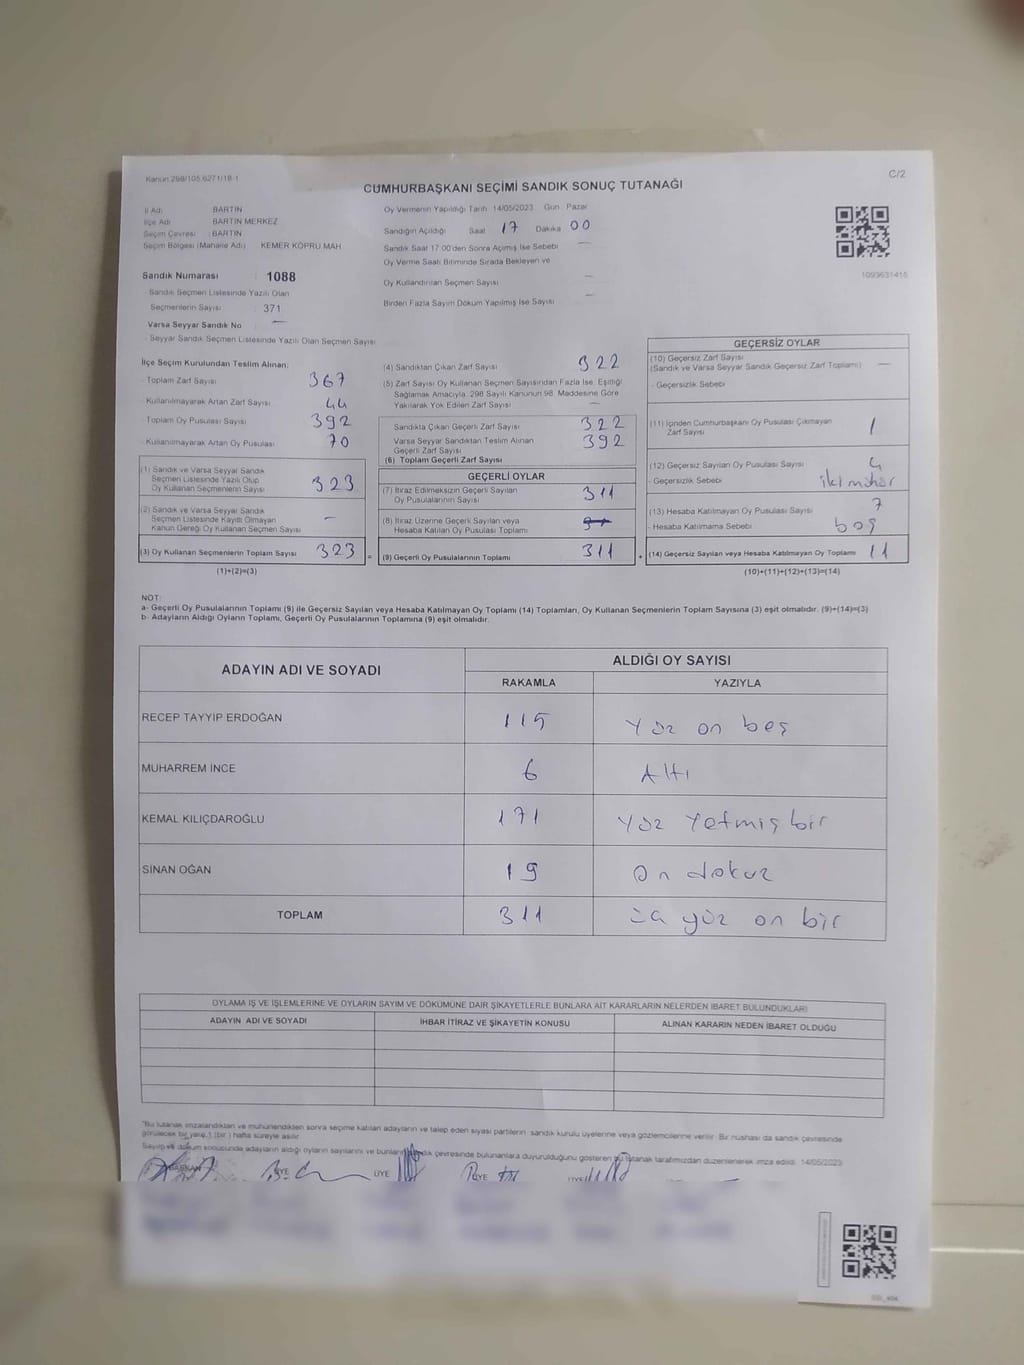 Kanun 298/105,6271/18-1
C/2
CUMHURBAŞKANI SEÇİMİ SANDIK SONUÇ TUTANAĞI
İl Adı BARTIN
İlçe Adı BARTIN MERKEZ
Seçim Çevresi : BARTIN
Seçim Bölgesi (Mahalle Adı) KEMER KÖPRU MAH
Sandık Numarası : 1088
- Sandık Seçmen Listesinde Yazılı Olan
Seçmenlerin Sayısı : 371
Varsa Seyyar Sandık No —
- Seyyar Sandık Seçmen Listesinde Yazılı Olan Seçmen Sayısı
Oy Vermenin Yapıldığı Tarih 14/05/2023 Gün Pazar
Sandığın Açıldığı Saat 17 Dakika 00
Sandık Saat 17:00'den Sonra Açılmış İse Sebebi —
Oy Verme Saati Bitiminde Sırada Bekleyen ve
Oy Kullandırılan Seçmen Sayısı —
Birden Fazla Sayım Döküm Yapılmış İse Sayısı —
1093631415
İlçe Seçim Kurulundan Teslim Alınan:
- Toplam Zarf Sayısı 367
- Kullanılmayarak Artan Zarf Sayısı 44
- Toplam Oy Pusulası Sayısı 392
- Kullanılmayarak Artan Oy Pusulası 70
(1) Sandık ve Varsa Seyyar Sandık
Seçmen Listesinde Yazılı Olup
Oy Kullanan Seçmenlerin Sayısı 323
(2) Sandık ve Varsa Seyyar Sandık
Seçmen Listesinde Kayıtlı Olmayan
Kanun Gereği Oy Kullanan Seçmen Sayısı —
(3) Oy Kullanan Seçmenlerin Toplam Sayısı 323
(1)+(2)=(3)
(4) Sandıktan Çıkan Zarf Sayısı 322
(5) Zarf Sayısı Oy Kullanan Seçmen Sayısından Fazla İse, Eşitliği
Sağlamak Amacıyla, 298 Sayılı Kanunun 98. Maddesine Göre
Yakılarak Yok Edilen Zarf Sayısı —
Sandıkta Çıkan Geçerli Zarf Sayısı 322
Varsa Seyyar Sandıktan Teslim Alınan
Geçerli Zarf Sayısı 392
(6) Toplam Geçerli Zarf Sayısı
GEÇERLİ OYLAR
(7) İtiraz Edilmeksizin Geçerli Sayılan
Oy Pusulalarının Sayısı 311
(8) İtiraz Üzerine Geçerli Sayılan veya
Hesaba Katılan Oy Pusulası Toplamı
= (9) Geçerli Oy Pusulalarının Toplamı 311 +
GEÇERSİZ OYLAR
(10) Geçersiz Zarf Sayısı
(Sandık ve Varsa Seyyar Sandık Geçersiz Zarf Toplamı) —
- Geçersizlik Sebebi
(11) İçinden Cumhurbaşkanı Oy Pusulası Çıkmayan
Zarf Sayısı 1
(12) Geçersiz Sayılan Oy Pusulası Sayısı
- Geçersizlik Sebebi iki mühür
(13) Hesaba Katılmayan Oy Pusulası Sayısı 7
- Hesaba Katılmama Sebebi boş
(14) Geçersiz Sayılan veya Hesaba Katılmayan Oy Toplamı 11
(10)+(11)+(12)+(13)=(14)
NOT:
a- Geçerli Oy Pusulalarının Toplamı (9) ile Geçersiz Sayılan veya Hesaba Katılmayan Oy Toplamı (14) Toplamları, Oy Kullanan Seçmenlerin Toplam Sayısına (3) eşit olmalıdır. (9)+(14)=(3)
b- Adayların Aldığı Oyların Toplamı, Geçerli Oy Pusulalarının Toplamına (9) eşit olmalıdır.
ADAYIN ADI VE SOYADI ALDIĞI OY SAYISI
RAKAMLA YAZIYLA
RECEP TAYYIP ERDOĞAN 115 Yüz on beş
MUHARREM İNCE 6 Altı
KEMAL KILIÇDAROĞLU 171 Yüz Yetmiş bir
SİNAN OĞAN 19 On dokuz
TOPLAM 311 yüz on bir
OYLAMA İŞ VE İŞLEMLERİNE VE OYLARIN SAYIM VE DÖKÜMÜNE DAİR ŞİKAYETLERLE BUNLARA AİT KARARLARIN NELERDEN İBARET BULUNDUKLARI
ADAYIN ADI VE SOYADI İHBAR İTİRAZ VE ŞİKAYETİN KONUSU ALINAN KARARIN NEDEN İBARET OLDUĞU
"Bu tutanak imzalandıktan ve mühürlendikten sonra seçime katılan adayların ve talep eden siyasi partilerin sandık kurulu üyelerine veya gözlemcilerine verilir. Bir nüshası da sandık çevresinde
görülecek bir yere, 1 (bir) hafta süreyle asılır.
Sayım ve döküm sonucunda adayların aldığı oyların sayılarını ve bunların çevresinde bulunanlara duyurulduğunu gösteren bu tutanak tarafımızdan düzenlenerek imza edildi. 14/05/2023
BAŞKAN ÜYE ÜYE ÜYE ÜYE